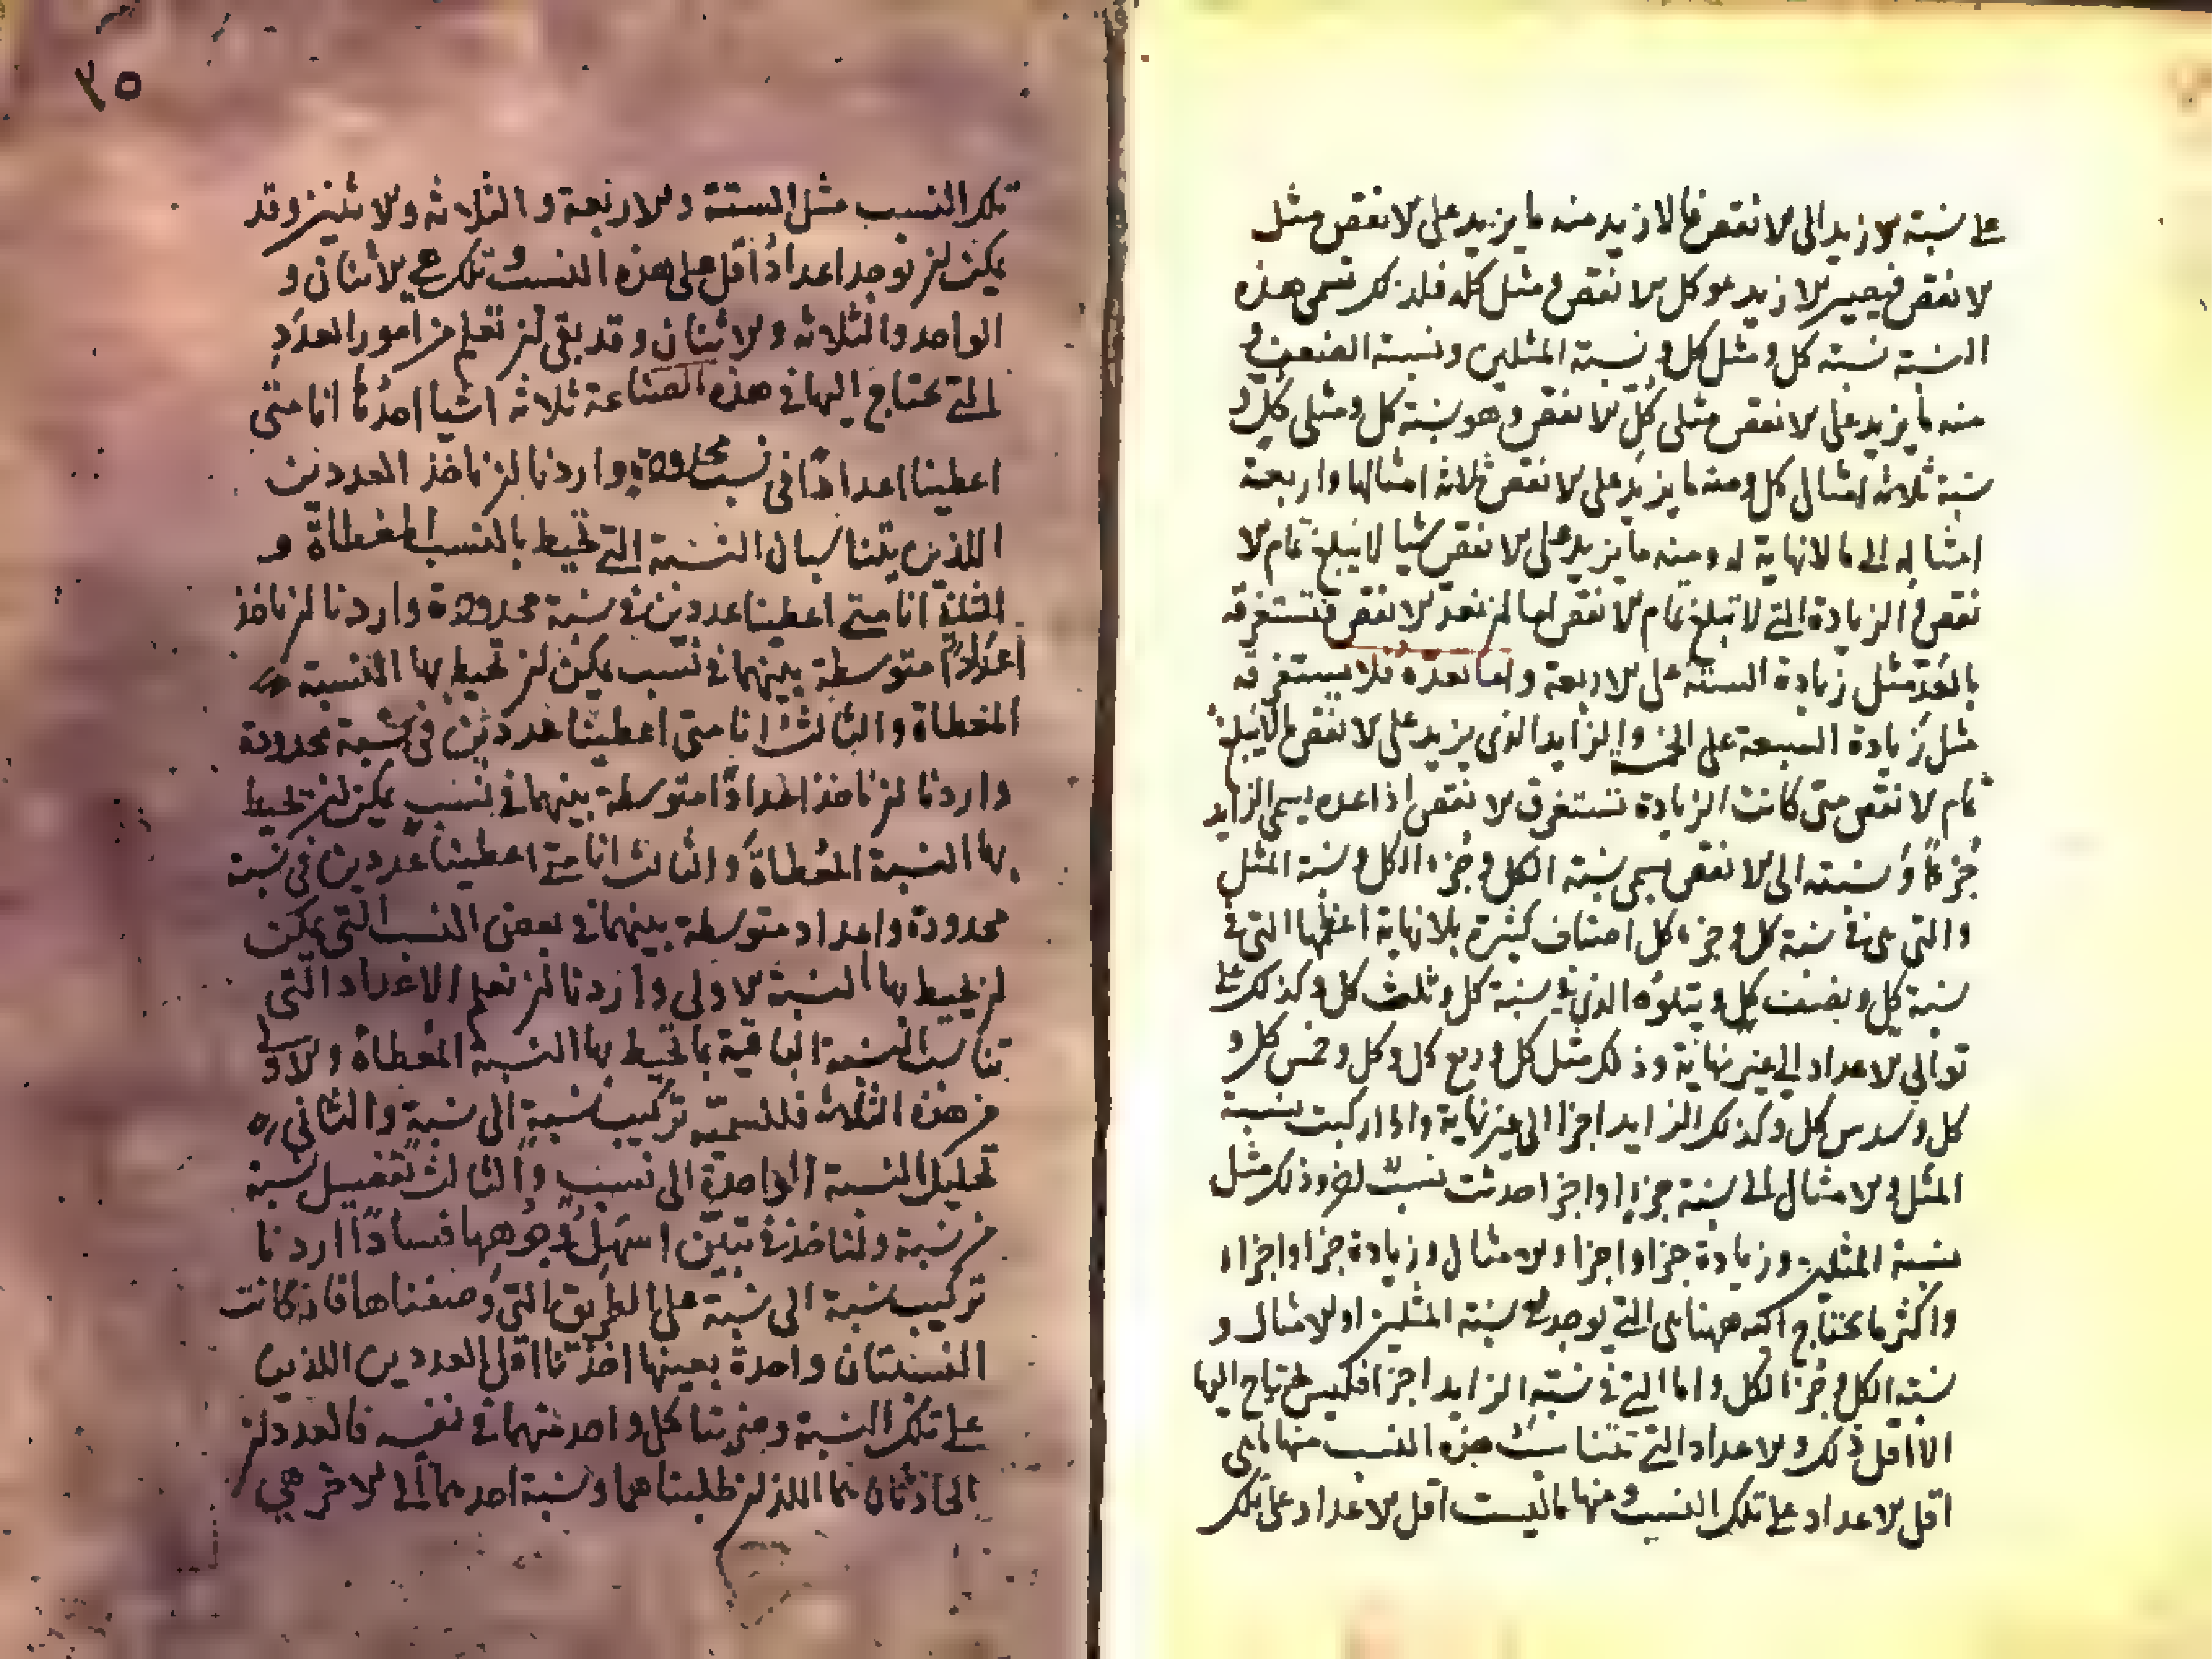 على نسبة الازيد الى الانقص فالازيد منه ما يزيد على الانقص مثل
الانقص فيصير الازيد هو كل الانقص ومثل كله فلذلك تسمى هذه
النسبة نسبة كل ومثل كل ونسبة المثلين ونسبة الضعف و
منه ما يزيد على الانقص مثلى كل الانقص وهو نسبة كل ومثلى كل و
نسبة ثلاثة امثال كل ومنه ما يزيد على الانقص ثلاثة امثالها واربعة
امثاله الى ما لا نهاية له ومنه ما يزيد على الانقص شيا لا يبلغ تمام الا
نقص و الزيادة التى لا تبلغ تمام الانقص اما ان تعد الانقص فتستغرقه
بالعد مثل زيادة الستة على الاربعة واما تعده فلا يستغرقه
مثل زيادة السبعة على الخمسة والزايد الذى يزيد على الانقص ما لا يبلغ
تمام الانقص متى كانت الزيادة تستغرق الانقص اذا عده يسمى الزايد
جزءا ونسبته الى الانقص يسمى نسبة الكل وجزء الكل ونسبة المثل
والتى هى فى نسبة كل وجزء كل اصناف كثيرة بلا نهاية اعظمها التى فى
نسبة كل ونصف كل ويتلوه الذى فى نسبة كل وثلث كل وكذلك على
توالى الاعداد الى غير نهاية وذلك مثل كل وربع كل وكل وخمس كل و
كل وسدس كل وكذلك الزايد اجزا الى غير نهاية واذا ركبت نسبة
المثل و الامثال الى نسبة جزء او اجزا حدثت نسب اخر وذلك مثل
نسبة المثلين وزيادة جزا واجزا والامثال وزيادة جزا واجزاء
واكثر ما يحتاج اليه ههنا هى التى توجد فى نسبة المثلين او الامثال و
نسبة الكل وجزا الكل واما التى فى نسبة الزايد اجزا فليس يحتاج اليها
الا اقل ذلك والاعداد التى تتناسب هذه النسب منها ما هى
اقل الاعداد على تلك النسب ومنها ما ليست اقل الاعداد على تلك
٣٥
تلك النسب مثل الستة والاربعة والثلاثة والاثنين وقد
يمكن ان توجد اعدادا اقل على هذه النسب وتلك هى الاثنان و
الواحد والثلاثة والاثنان وقد بقى ان نعلم من امور العدد
التى يحتاج اليها فى هذه الصناعة ثلاثة اشيا احدها انا متى
اعطينا اعدادا فى نسب محدودة واردنا ان ناخذ العددين
اللذين يتناسبان النسبة التى تحيط بالنسب المعطاة و
انا متى اعطينا عددين فى نسبة محدودة واردنا ان ناخذ
اعدادا متوسطة بينهما فى نسب يمكن ان تحيط بها النسبة
المعطاة والثالث انا متى اعطينا عددين فى نسبة محدودة
واردنا ان ناخذ اعدادا متوسطة بينهما فى نسب يمكن ان تحيط
بها النسبة المعطاة والثالث انا متى اعطينا عددين فى نسبة
محدودة واعداد متوسطة بينهما فى بعض النسب التى يمكن
ان تحيط بها النسبة الاولى واردنا ان نعلم الاعداد التى
تناسب النسبة الباقية مما تحيط بها النسبة المعطاة والاول
من هذه الثلاثة فلنسميه تركيب نسبة الى نسبة والثانى
تحليل النسبة الواحدة الى نسب والثالث تفصيل نسبة
من نسبة ولناخذ فى تبين اسهل وجوهها فمتى اردنا
تركيب نسبة الى نسبة على الطريق التى وصفناها فان كانت
النسبتان واحدة بعينها اخذنا اقل العددين اللذين
على تلك النسبة وضربنا كل واحد منهما فى نفسه فالعددان
الحادثان هما اللذان طلبناهما ونسبة احدهما الى الاخر هى